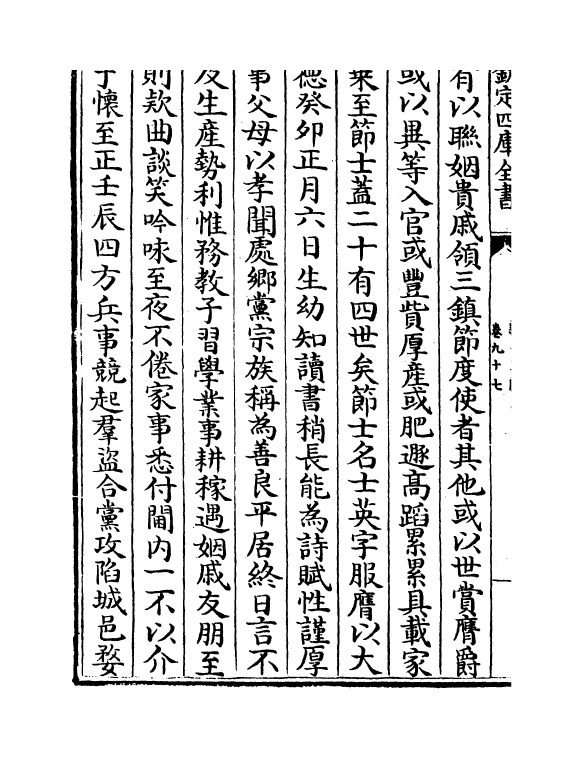 欽定四庫全書
卷九十七
有以聯姻貴戚領三鎮節度使者其他或以世賞膺爵
或以異等入官或豐貲厚產或肥遯高蹈累累具載家
乗至節士蓋二十有四世矣節士名士英字服膺以大
徳癸卯正月六日生幼知讀書稍長能為詩賦性謹厚
事父母以孝聞處鄉黨宗族稱為善良平居終日言不
及生產勢利惟務教子習學業事耕稼遇姻戚友朋至
則欵曲談笑吟咏至夜不倦家事悉付閫内一不以介
于懷至正壬辰四方兵事競起羣盜合黨攻陷城邑婺